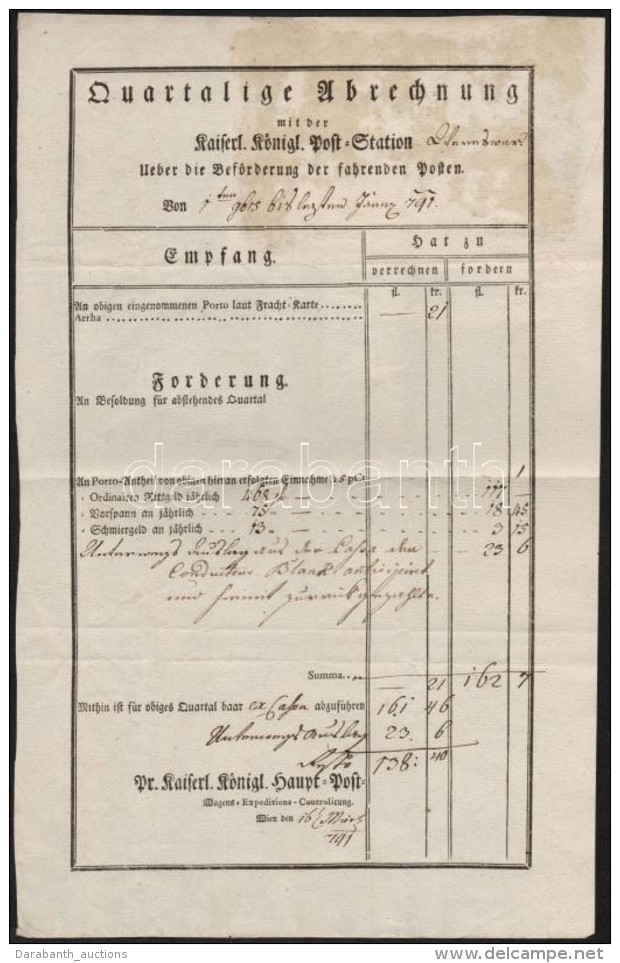 Quartalige Abrechnung
mit der
Kaiserl. Königl. Post-Station
Ueber die Beförderung der fahrenden Posten.
Von 1ten 9bris bis lezten Jänner 791.
Empfang. Hat zu
verrechnen fordern
fl. kr. fl. kr.
An obigen eingenommenen Porto laut Fracht-Karte ....... — 21
Arrha
Forderung.
An Besoldung für abstehendes Quartal
An Porto-Antheil von obigen hieran erfolgten Einnahme 5 pCt. 1
- Ordinairen Rittgeld jährlich 468 117
- Vorspann an jährlich 75 18 45
- Schmiergeld an jährlich 13 3 15
Unterwegs Auslag aus der Cassa dem 23 6
Conducteur Blank anticipiret
und hiemit zurückgezahlt.
Summa — 21 162 7
Mithin ist für obiges Quartal baar ex Cassa abzuführen 161 46
Unterwegs Auslag 23. 6
138: 40
Pr. Kaiserl. Königl. Haupt-Post-
Wagens-Expeditions-Controllirung.
Wien den 16 März
791
darabanth
Darabanth_auctions
www.delcampe.net